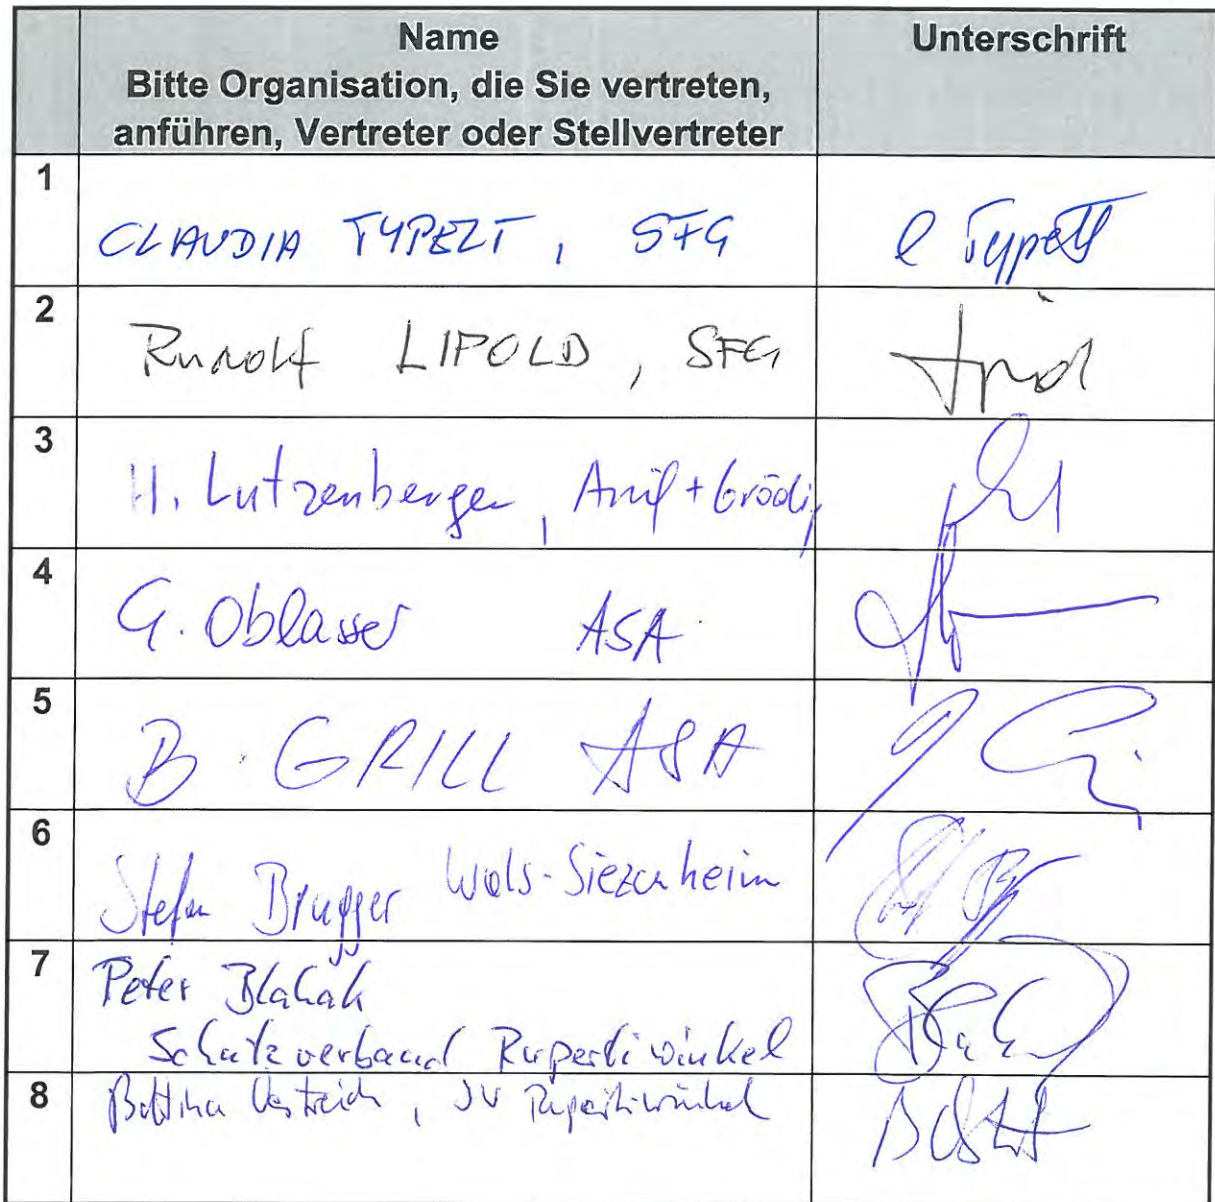 Name
Bitte Organisation, die Sie vertreten,
anführen, Vertreter oder Stellvertreter
Unterschrift
1
CLAUDIA TYPELT, SFG
2
Rudolf LIPOLD, SFG
3
H. Lutzenberger, Anif + Grödig
4
G. Oblasser ASA
5
B. GRILL ASA
6
Stefan Brugger Wals-Siezenheim
7
Peter Blahak
Schutzverband Rupertiwinkel
8
Bettina Oestreich, SV Rupertiwinkel